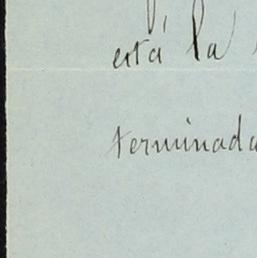 está la
terminada